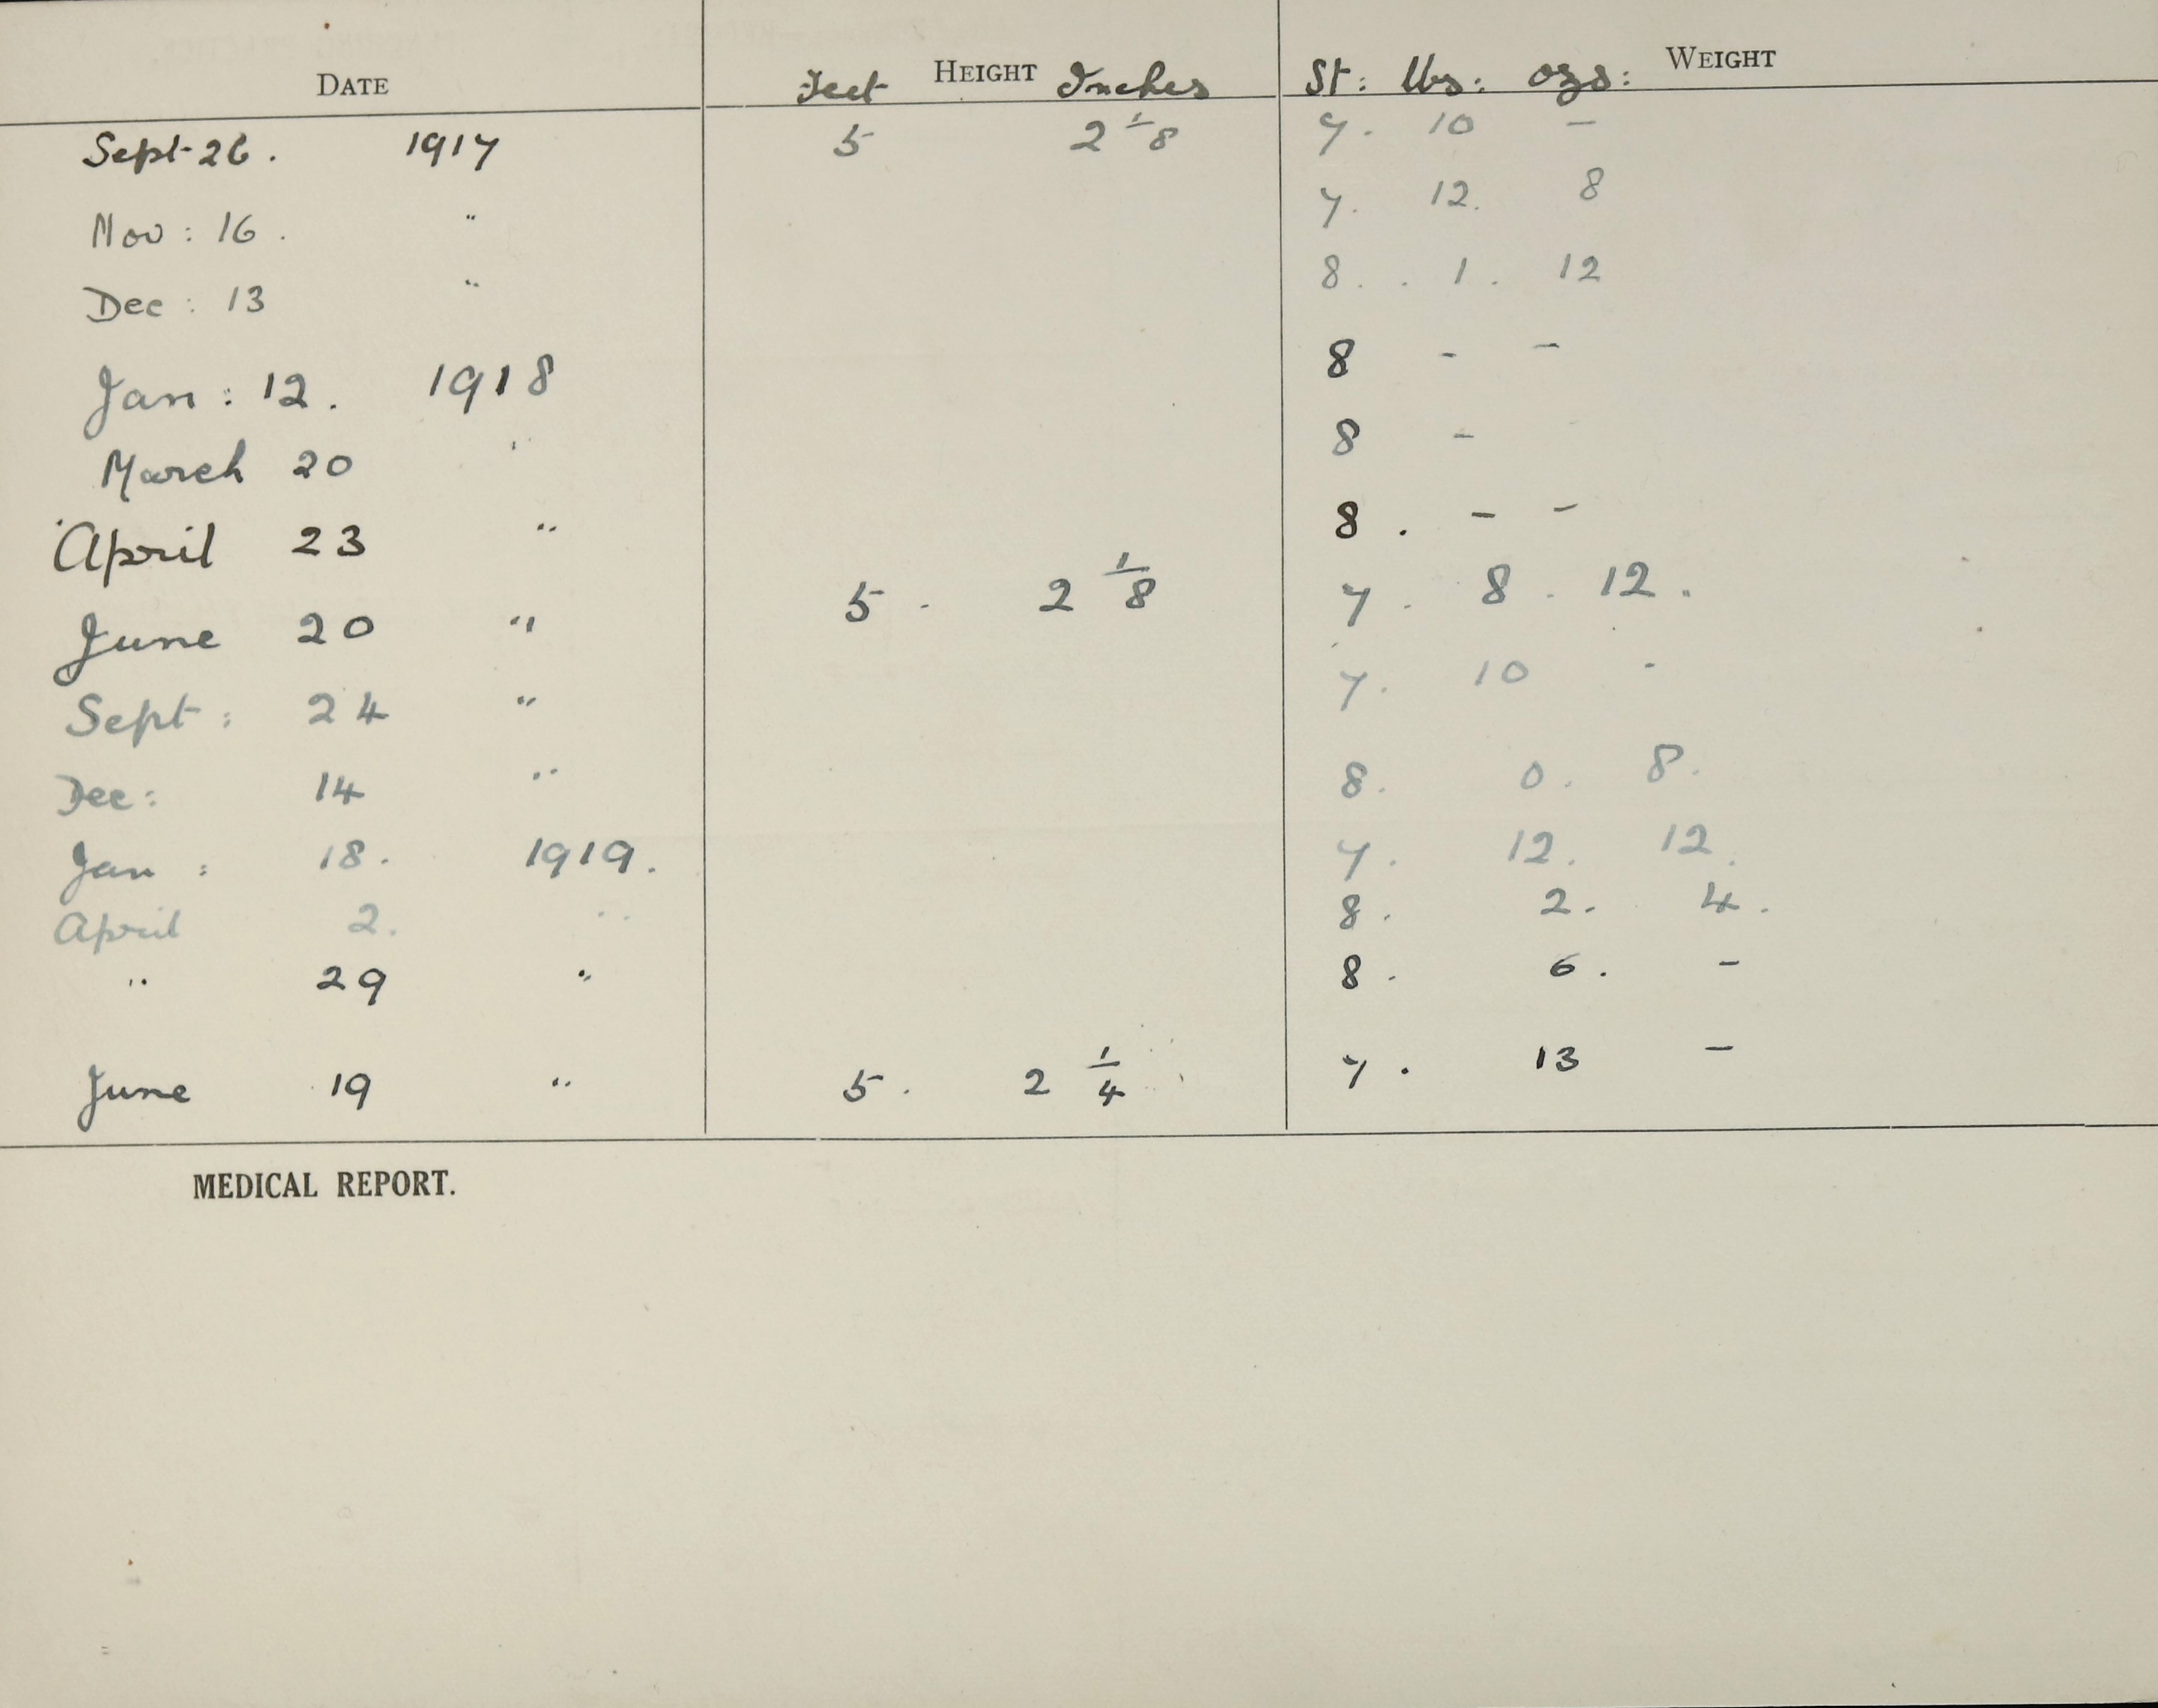 DATE Feet HEIGHT Inches St: lbs: ozs: WEIGHT
Sept-26. 1917 5 2 1/8 7. 10 –
Nov: 16. " 7. 12. 8
Dec: 13 " 8. . 1. 12
Jan: 12. 1918 8 - –
March 20 " 8 –
April 23 " 8. – –
June 20 " 5. 2 1/8 7. 8. 12.
Sept: 24 " 7. 10 -
Dec: 14 " 8. 0. 8.
Jan: 18. 1919. 7. 12. 12.
April 2. " 8. 2. 4.
" 29 " 8. 6. –
June 19 " 5. 2 1/4 7. 13 –
MEDICAL REPORT.